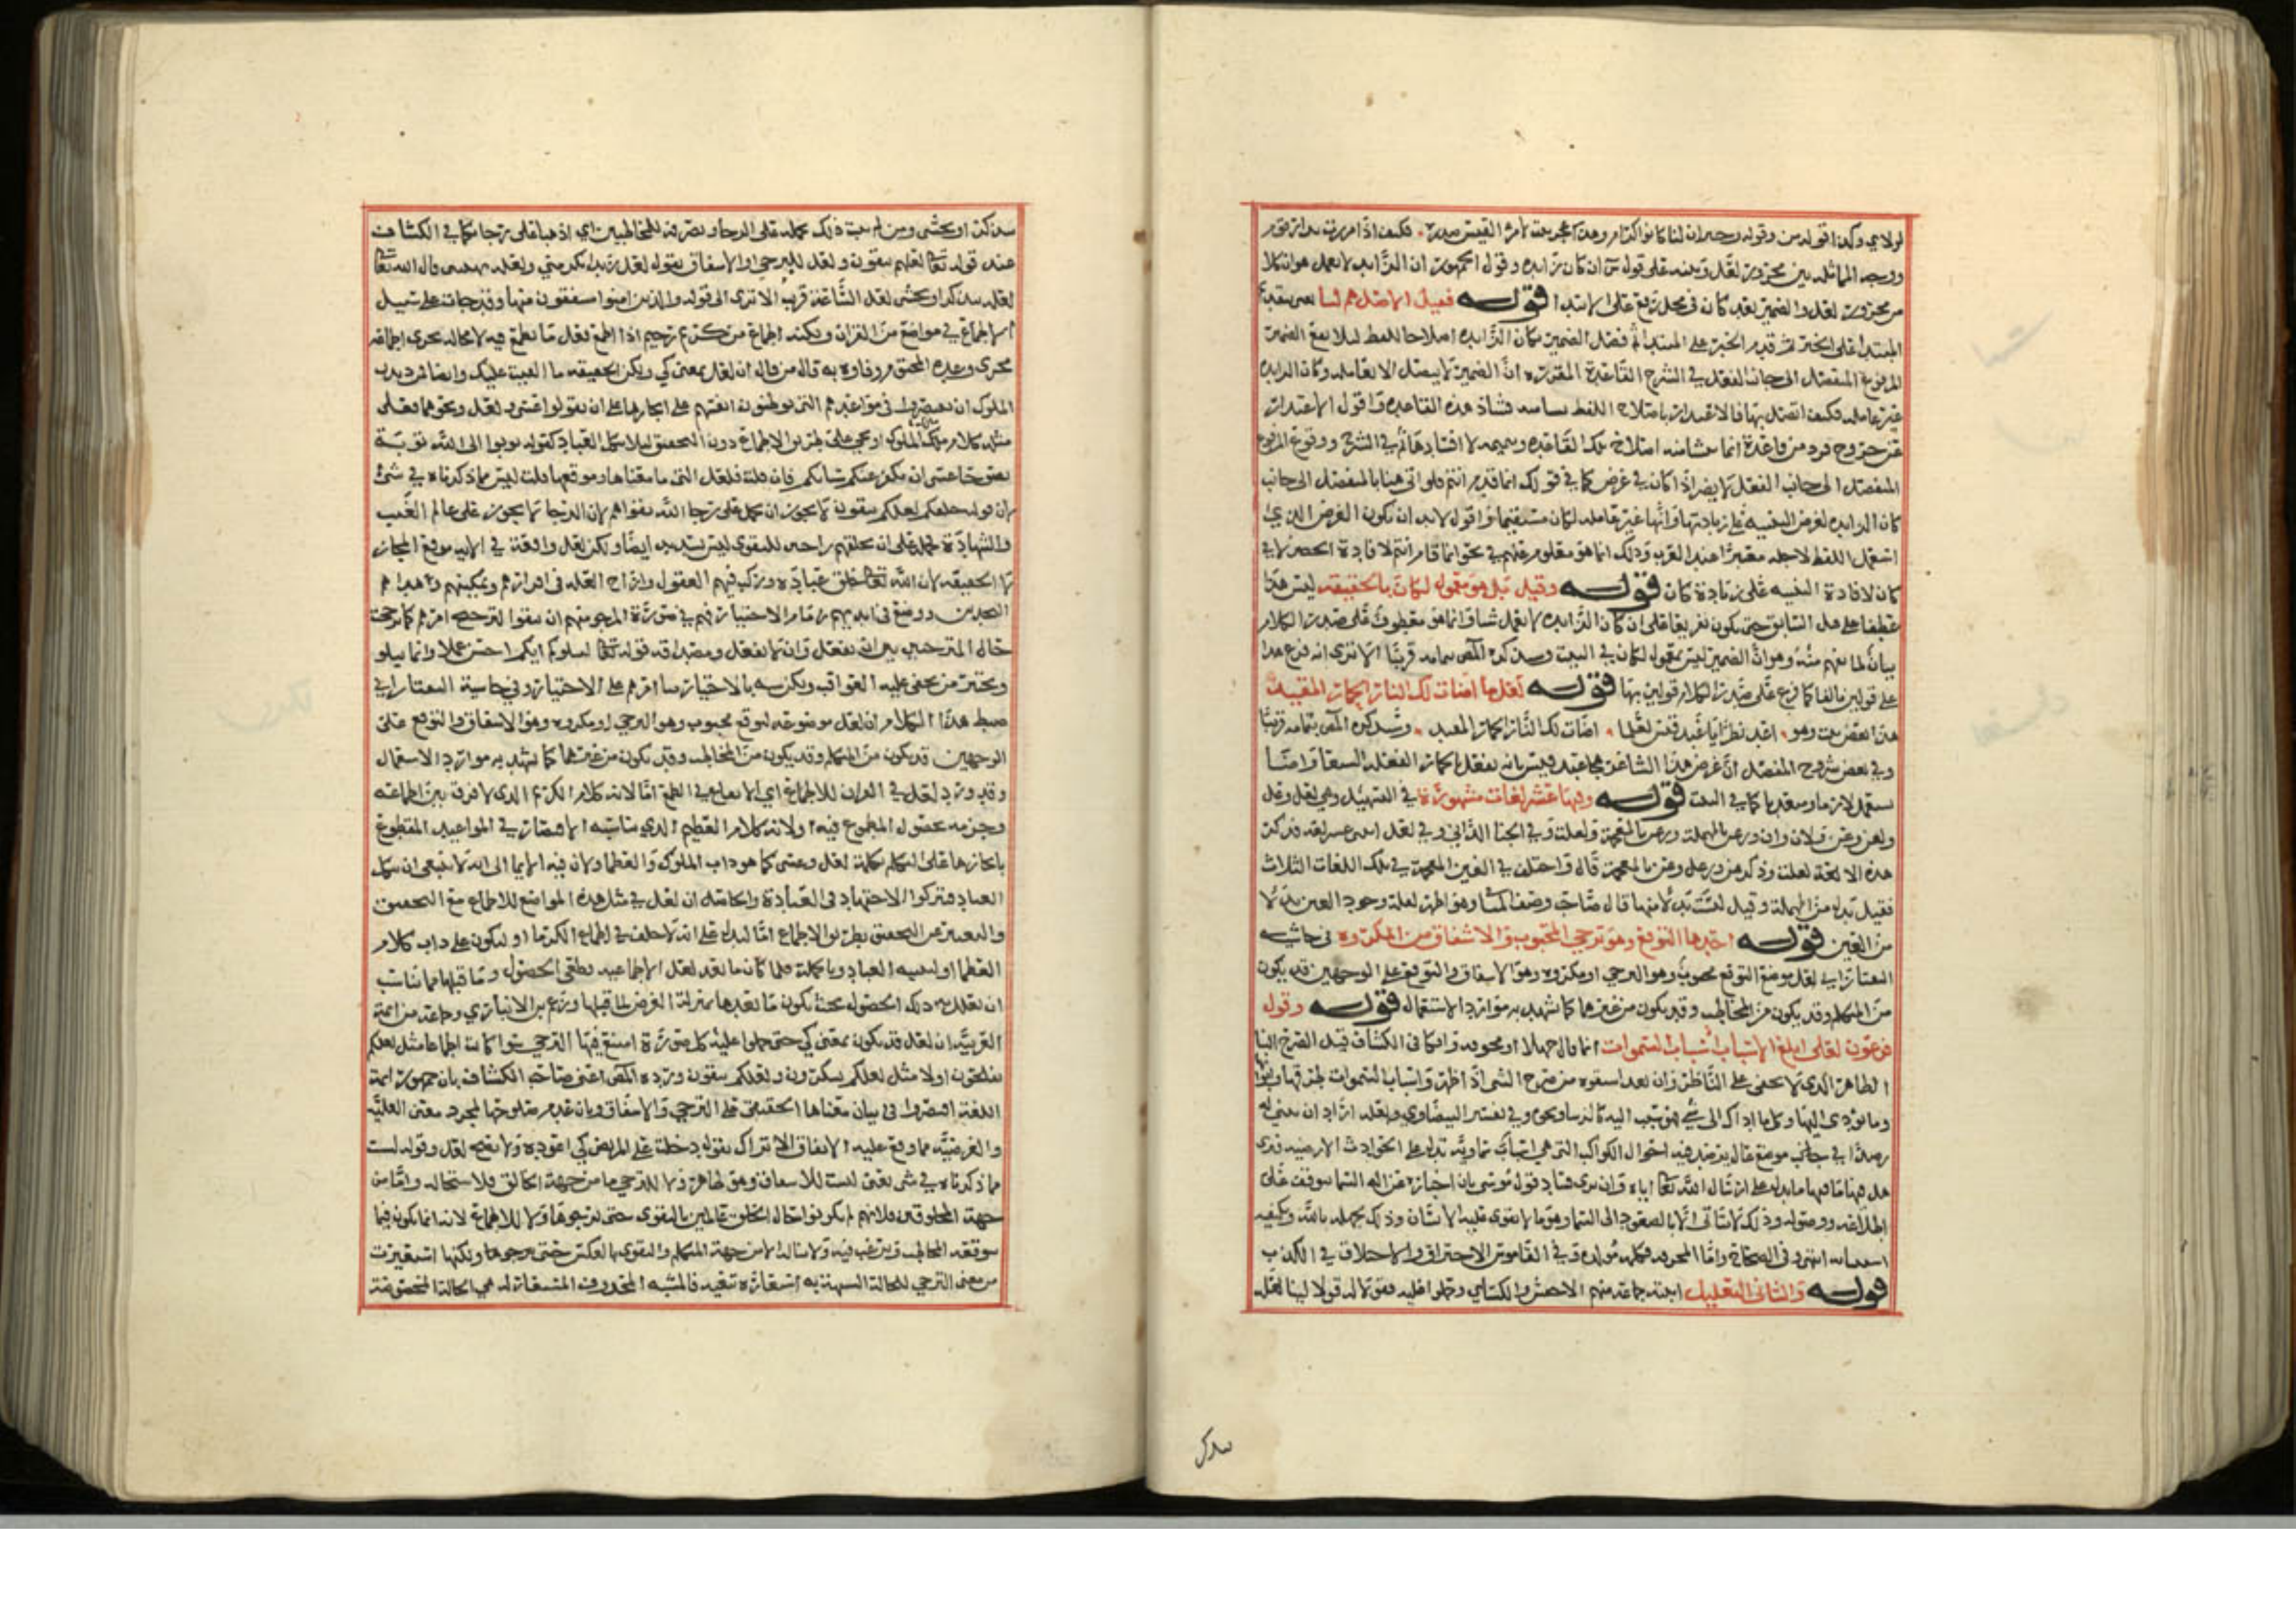 لولاي وكذا قوله من وقوله وجيران لنا كانوا كرام وهذا عجز بيت لامرء القيس صدره فكيف اذا مررت بدار قوم
ووجه المماثلة بين مجرور لعل وبينه على قول س ان كان زايده وقول الجمهور ان الزايد لا يعمل هو ان كلا
من مجرور لعل والضمير بعد كان في محل رفع على الابتدا قوله فقيل الاصل هم لنا يعني بعد
المبتدا على الخبر ثم قدم الخبر على المبتدا ثم فصل الضمير بكان الزايده اصلاحا للفظ ليلا يقع الضمير
المرفوع المنفصل الى جانب الفعل في الشرح القاعدة المقرره ان الضمير لا يتصل الا بعامله وكان الزايده
غير عامله فكيف اتصل بها فالاعتذار باصلاح اللفظ
عن خروج فرد من قاعدة انما شانه اصلاح تلك القاعده لا افسادها في الشرح ووقوع المرفوع
المنفصل الى جانب الفعل لا يضر اذا كان في غرض كما في قولك انما قدم انتم فلو اتى هنا بالمنفصل الى جانب
كان الزايده لغرض التنبيه على زيادتها وانها غير عامله لكان مستقيما واقول لابد ان يكون الغرض الذي
استعمل اللفظ لاجله معتبرا عند العرب وذلك انما هو معلوم عنهم في نحو انما قام انتم لافادة الحصر لا في
كان لافادة التنبيه على زيادة كان قوله وقيل بل هو معمول لكان بالحقيقة ليس هذا
عطفا على هل السابق حتى يكون تفريعا على ان كان الزايده لا تعمل شيا وانما هو معطوف على صدر الكلام
بيان لما يفهم منه وهو ان الضمير ليس بمعمول لكان في البيت وسيذكره المص بتمامه قريبا الا ترى انه فرع هذا
على قولين بالفا كما فرع على صدر الكلام قولين بها قوله لعلما اضات لك النار الحمار المقيدا
هذا بعض بيت وهو اعد نظرا يا عبد قيس لعلما اضات لك النار الحمار المقيد وسيذكره المص بتمامه قريبا
وفي بعض شروح المفصل ان غرض هذا الشاعر هجا عبد قيس بانه يفعل بالحمار الفعلة الشنعا واضا
يستعمل لازما ومتعديا كما في البيت قوله وفيها عشر لغات مشهورة في التسهيل وهي لعل وعل
ولعن وعن ولان وان ورعن بالمهملة ورغن بالمعجمة ولعلت وفي الجنا الداني وفي لعل اثنى عشر لغة فذكر
هذه الا لغة لعلت وذكر عن ورعل وغن بالمعجمة قال واختلف في الغين المعجمة في تلك اللغات الثلاث
فقيل بدل من المهملة وقيل ليست بدلا منها قال صاحب وصف المباني وهو اظهر لقلة وجود العين بدلا
من الغين قوله احدها التوقع وهو ترجي المحبوب والاشفاق من المكروه في حاشية
التفتازاني لعل موضع التوقع محبوب وهو الترجي او مكروه وهو الاشفاق والتوقع على الوجهين قد يكون
من المتكلم وقد يكون من المخاطب وقد يكون من غيرهما كما تشهد به موارد الاستعمال قوله وقول
فرعون لعلي ابلغ الاسباب اسباب السموات انما قاله جهلا او مخرقة وافكا في الكشاف قيل الصرح البنا
الظاهر الذي لا يخفى على الناظر وان بعد اشتقوه من صرح الشي اذا ظهر واسباب السموات طرقها وابوابها
وما يودي اليها وكل ما اداك الى شي فهو سبب اليه كالرشا ونحوه وفي تفسير البيضاوي ولعله اراد ان يبني له
رصدا في موضع عال يرصد فيه احوال الكواكب التي هي اسباب سماوية تدل على الحوادث الارضيه فيرى
هل فيها ما يدل على ارسال الله تعالى اياه او ان يرى فساد قول موسى بان اخباره عن اله السما يتوقف على
اطلاعه ووصوله وذلك لا يتاتى الا بالصعود الى السما وهو مما لا يقوى عليه الانسان وذلك لجهله بالله وكيفية
استنبائه انتهى وفي الصحاح واما المخرقة فكلمة مولدة وفي القاموس الاختراق والاختلاق في الكذب
قوله والثاني التعليل اثبته جماعة منهم الاخفش والكسائي وحملوا عليه فقولا له قولا لينا لعله
يتذكر
يتذكر او يخشى ومن لم يثبت ذلك يحمله على الرجا ويصرفه للمخاطبين اي اذهبا على رجائكما في الكشاف
عند قوله تعالى لعلكم تتقون ولعل للترجي او الاشفاق يقول لعل زيدا يكرمني ولعله يهينني قال الله تعالى
لعله يتذكر او يخشى لعل الساعة قريب الا ترى الى قوله والذين امنوا مشفقون منها وقد جات على سبيل
الاطماع في مواضع من القران ولكنه اطماع من كريم رحيم اذا اطمع فعل ما يطمع فيه لا محالة لجري اطماعه
مجرى وعده المحتوم وفاوه به قال من قال ان لعل بمعنى كي ولكن الحقيقة ما القيت عليك وايضا فمن ديدن
الملوك ان يقتصروا في مواعيدهم التي يوطنون انفسهم على انجازها على ان يقولوا عسى ولعل ونحوهما فعلى
مثله كلام ملك الملوك او يجي على طريق الاطماع دون التحقيق ليلا يتكل العباد كقوله توبوا الى الله توبة
نصوحا عسى ان يكفر عنكم سياتكم فان قلت فلعل التي ما معناها وموقعها قلت ليس مما ذكرناه في شي
لان قوله خلقكم لعلكم تتقون لا يجوز ان يحمل على رجا الله تقواهم لان الرجا لا يجوز على عالم الغيب
والشهادة وحمله على ان يخلقهم راجين للتقوى ليس بسديد ايضا ولكن لعل واقعة في الاية موقع المجاز
لا الحقيقة لان الله تعالى خلق عباده وركب فيهم العقول وازاح العلة في اقدارهم وتمكينهم وهداهم
النجدين ووضع في ايديهم زمام الاختيار فهم في صورة المرجو منهم ان يتقوا لترجح امرهم كما ترجحت
حال المترجي بين ان يفعل وان لا يفعل ومصداقه قوله تعالى ليبلوكم ايكم احسن عملا وانما يبلو
ويختبر من يخفى عليه العواقب ولكن شبه بالاختيار بنا امرهم على الاختيار وفي حاشية التفتازاني
ضبط هذا الكلام ان لعل موضوعة لتوقع محبوب وهو الترجي او مكروه وهو الاشفاق والتوقع على
الوجهين قد يكون من المتكلم وقد يكون من المخاطب وقد يكون من غيرهما كما تشهد به موارد الاستعمال
وقد ورد لعل في القران للاطماع اي الايقاع في الطمع اما لانه كلام الكريم الذي لا فرق بين اطماعه
وجزمه بحصول المطموع فيه او لانه كلام العظيم الذي يناسبه الاقتصار في المواعيد المقطوع
بانجازها على التكلم بكلمة لعل وعسى كما هو داب الملوك والعظما ولان فيه ايما الى انه لا ينبغي ان يتكل
العباد فيتركوا الاجتهاد في العبادة والحاصل ان لعل في مثل هذه المواضع للاطماع مع التحقيق
والتعبير عن التحقيق بطريق الاطماع اما ليدل على انه لا خلف في اطماع الكرما او ليكون على داب كلام
العظما او لتنبيه العباد وبالجملة فلما كان ما بعد لعل الاطماعية قطعي الحصول وما قبلها مما يناسب
ان يعلل به ذلك الحصول بحيث يكون ما بعدها بمنزلة الغرض لما قبلها زعم ابن الانباري وجماعة من ايمة
العربية ان لعل قد يكون بمعنى كي حتى حملوا عليه كل صورة امتنع فيها الترجي سوا كانت اطماعا مثل لعلكم
تفلحون او لا مثل لعلكم تشكرون ولعلكم تتقون ورده المص اعني صاحب الكشاف بان جمهور ايمة
اللغة اقتصروا في بيان معناها الحقيقي على الترجي والاشفاق وبان عدم صلوحها لمجرد معنى العلية
والغرضية مما وقع عليه الاتفاق الا تراك تقول دخلت على المريض كي اعوده ولا يصح لعل وقوله ليست
مما ذكرناه في شي يعني ليست للاشفاق وهو ظاهر ولا للترجي اما من جهة الخالق فلاستحاله واما من
جهة المخلوقين فلانهم لم يكونوا حال الخلق عالمين بالتقوى حتى يرجوها ولا للاطماع لانه انما يكون فيما
يتوقعه المخاطب ويرغب فيه ولا يناله الا من جهة المتكلم والتقوى بالعكس حتى يرجوها ولكنها استعيرت
من معنى الترجي للحالة الشبيهة به استعارة تبعية فالمشبه المحذوف المستعار له هي الحالة المحققة عند